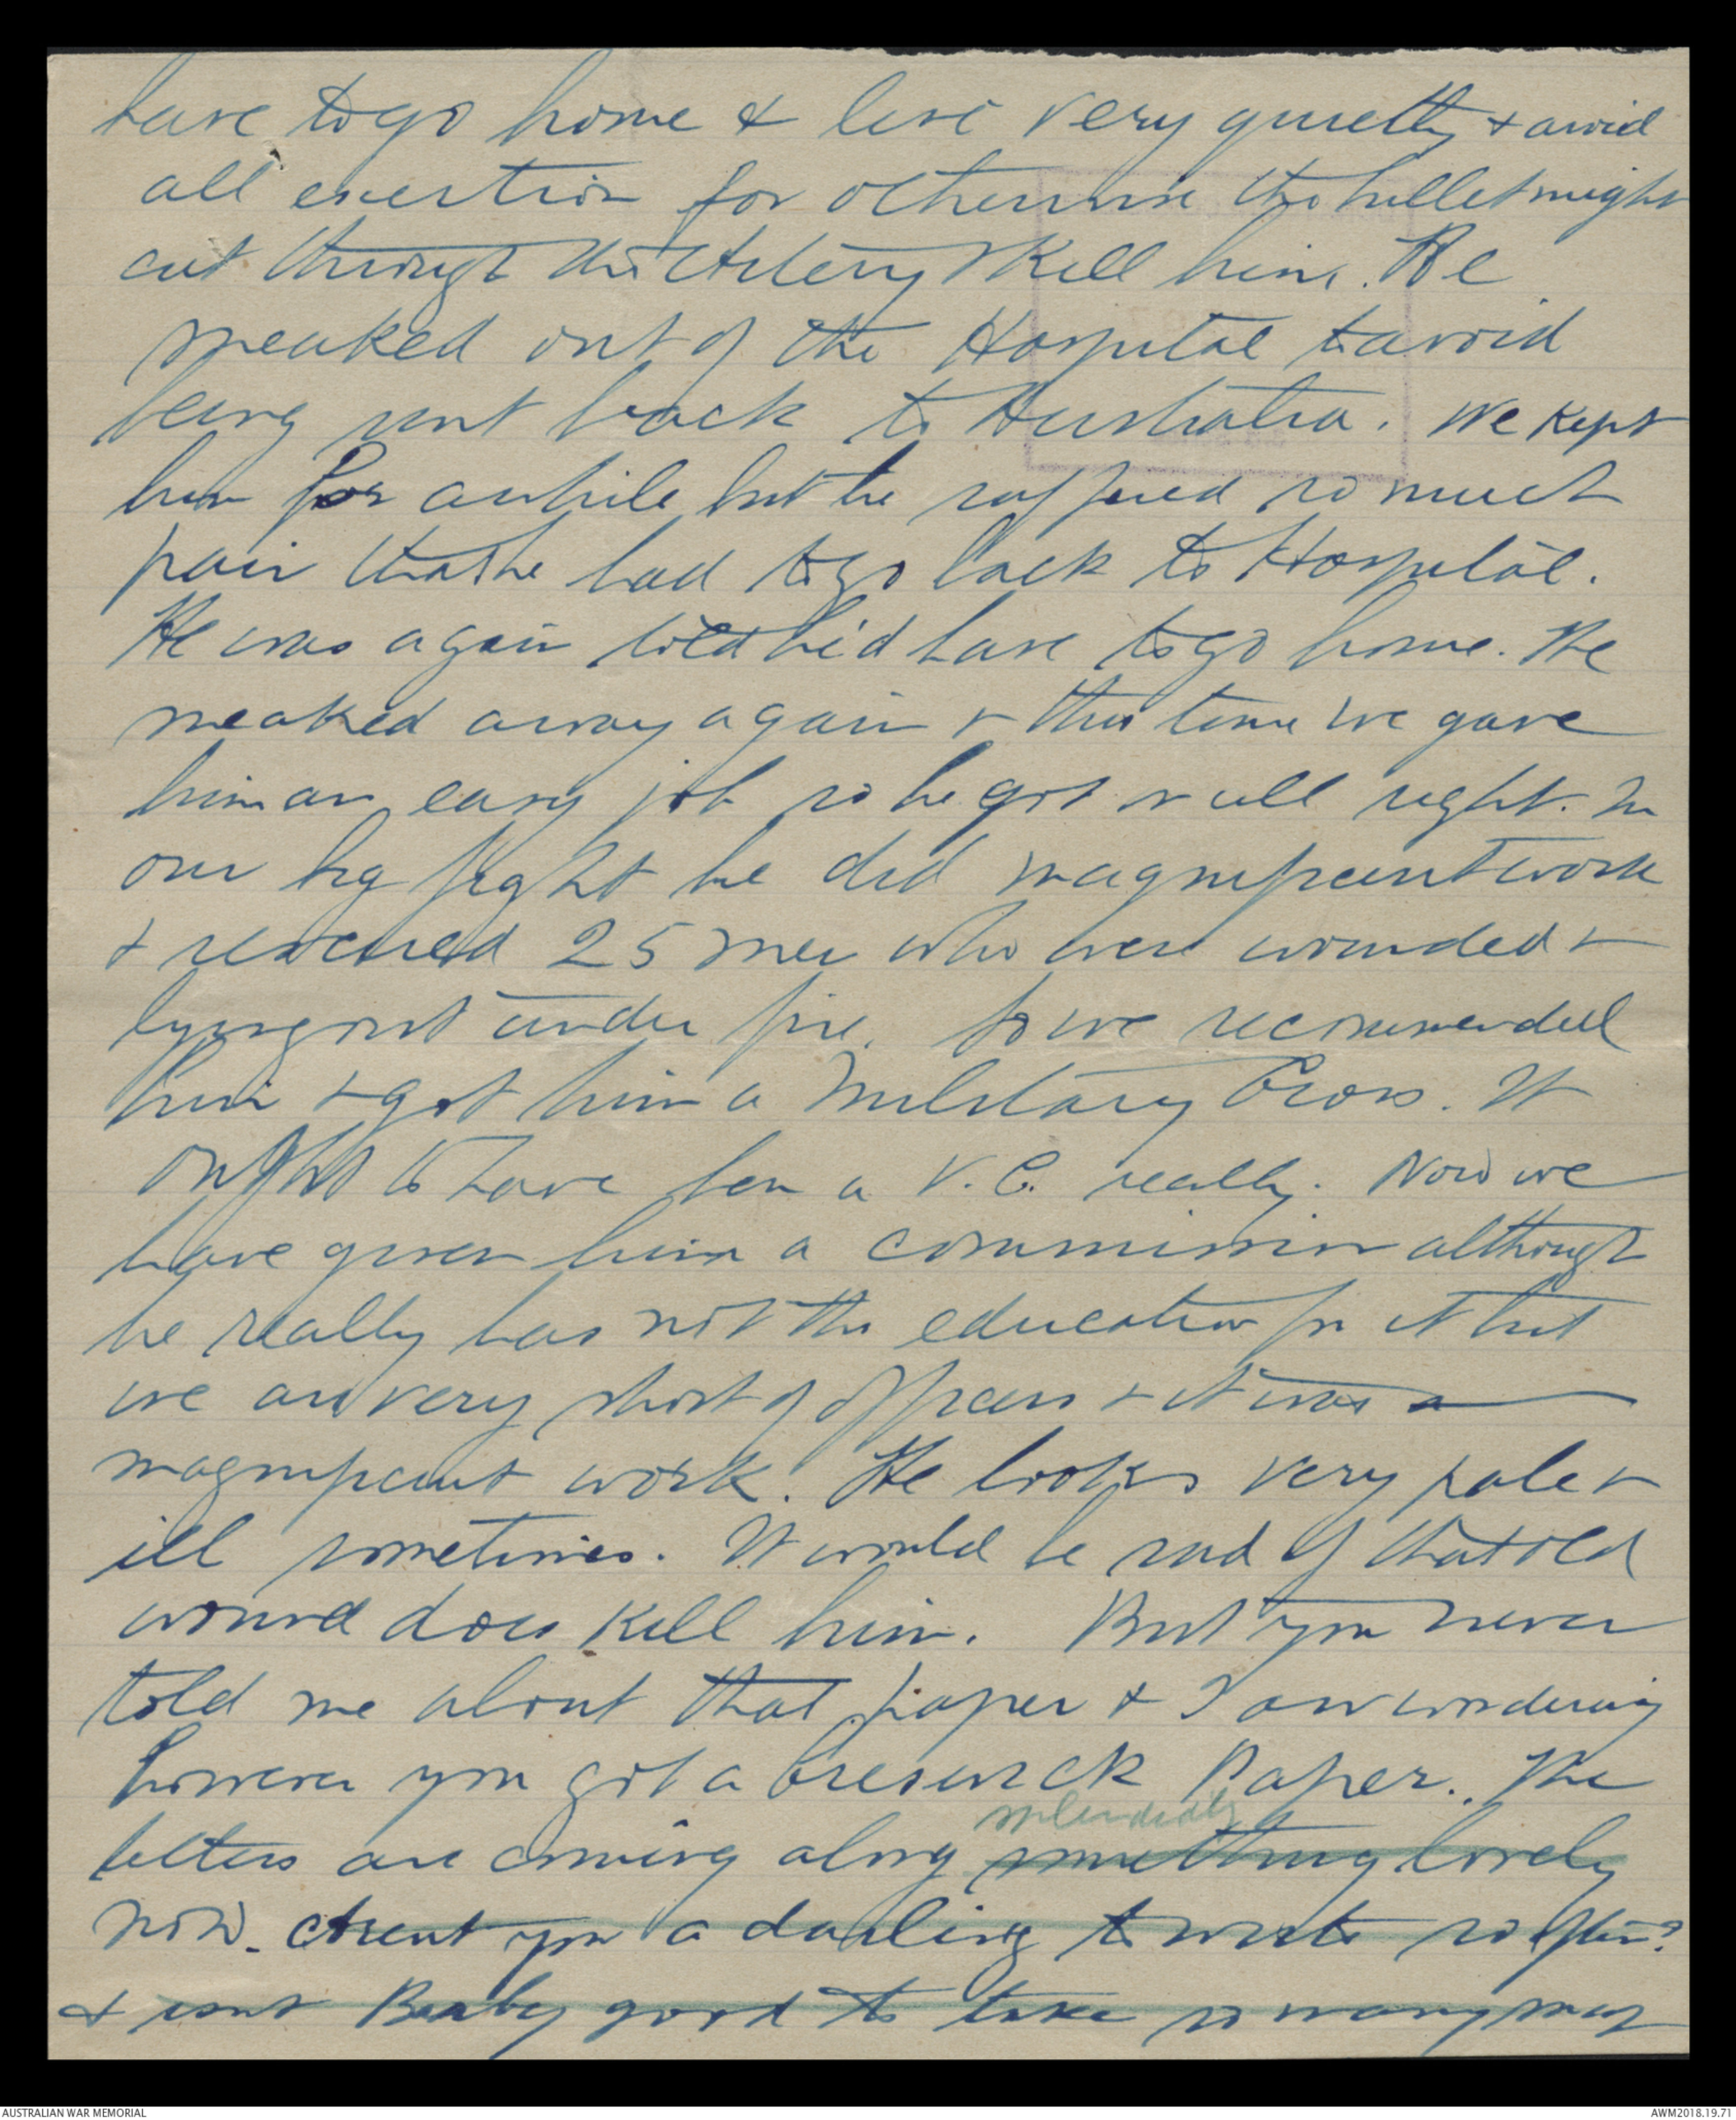 have to go home & live very quietly & avoid
all exertion for otherwise the bullet might
cut through the Artery & Kill him. He
sneaked out of the Hospital to avoid
being sent back to Australia. We kept
him for awhile but he suffered so much
pain that he had to go back to Hospital.
He was again told he'd have to go home. He
sneaked away again & this time we gave
him an easy job so he got on all right. In
our big fight he did magnificent work
& rescued 25 men who were wounded &
lying out under fire. So we recommended
him & got him a Military Cross. It
ought to have been a V.C. really. Now we
have given him a commission although
he really has not the education for it but
we are very short of officers & it was a
magnificent work. He looks very pale &
ill sometimes. It would be sad if that old
wound does kill him. But you never
told me about that paper & I am wondering
however you got a Breswick Paper. The
splendidly
letters are coming along something lovely
now. Arent you a darling to write so often?
& isnt Beaby good to take so many
AUSTRALIAN WAR MEMORIAL
AWM2018.19.71